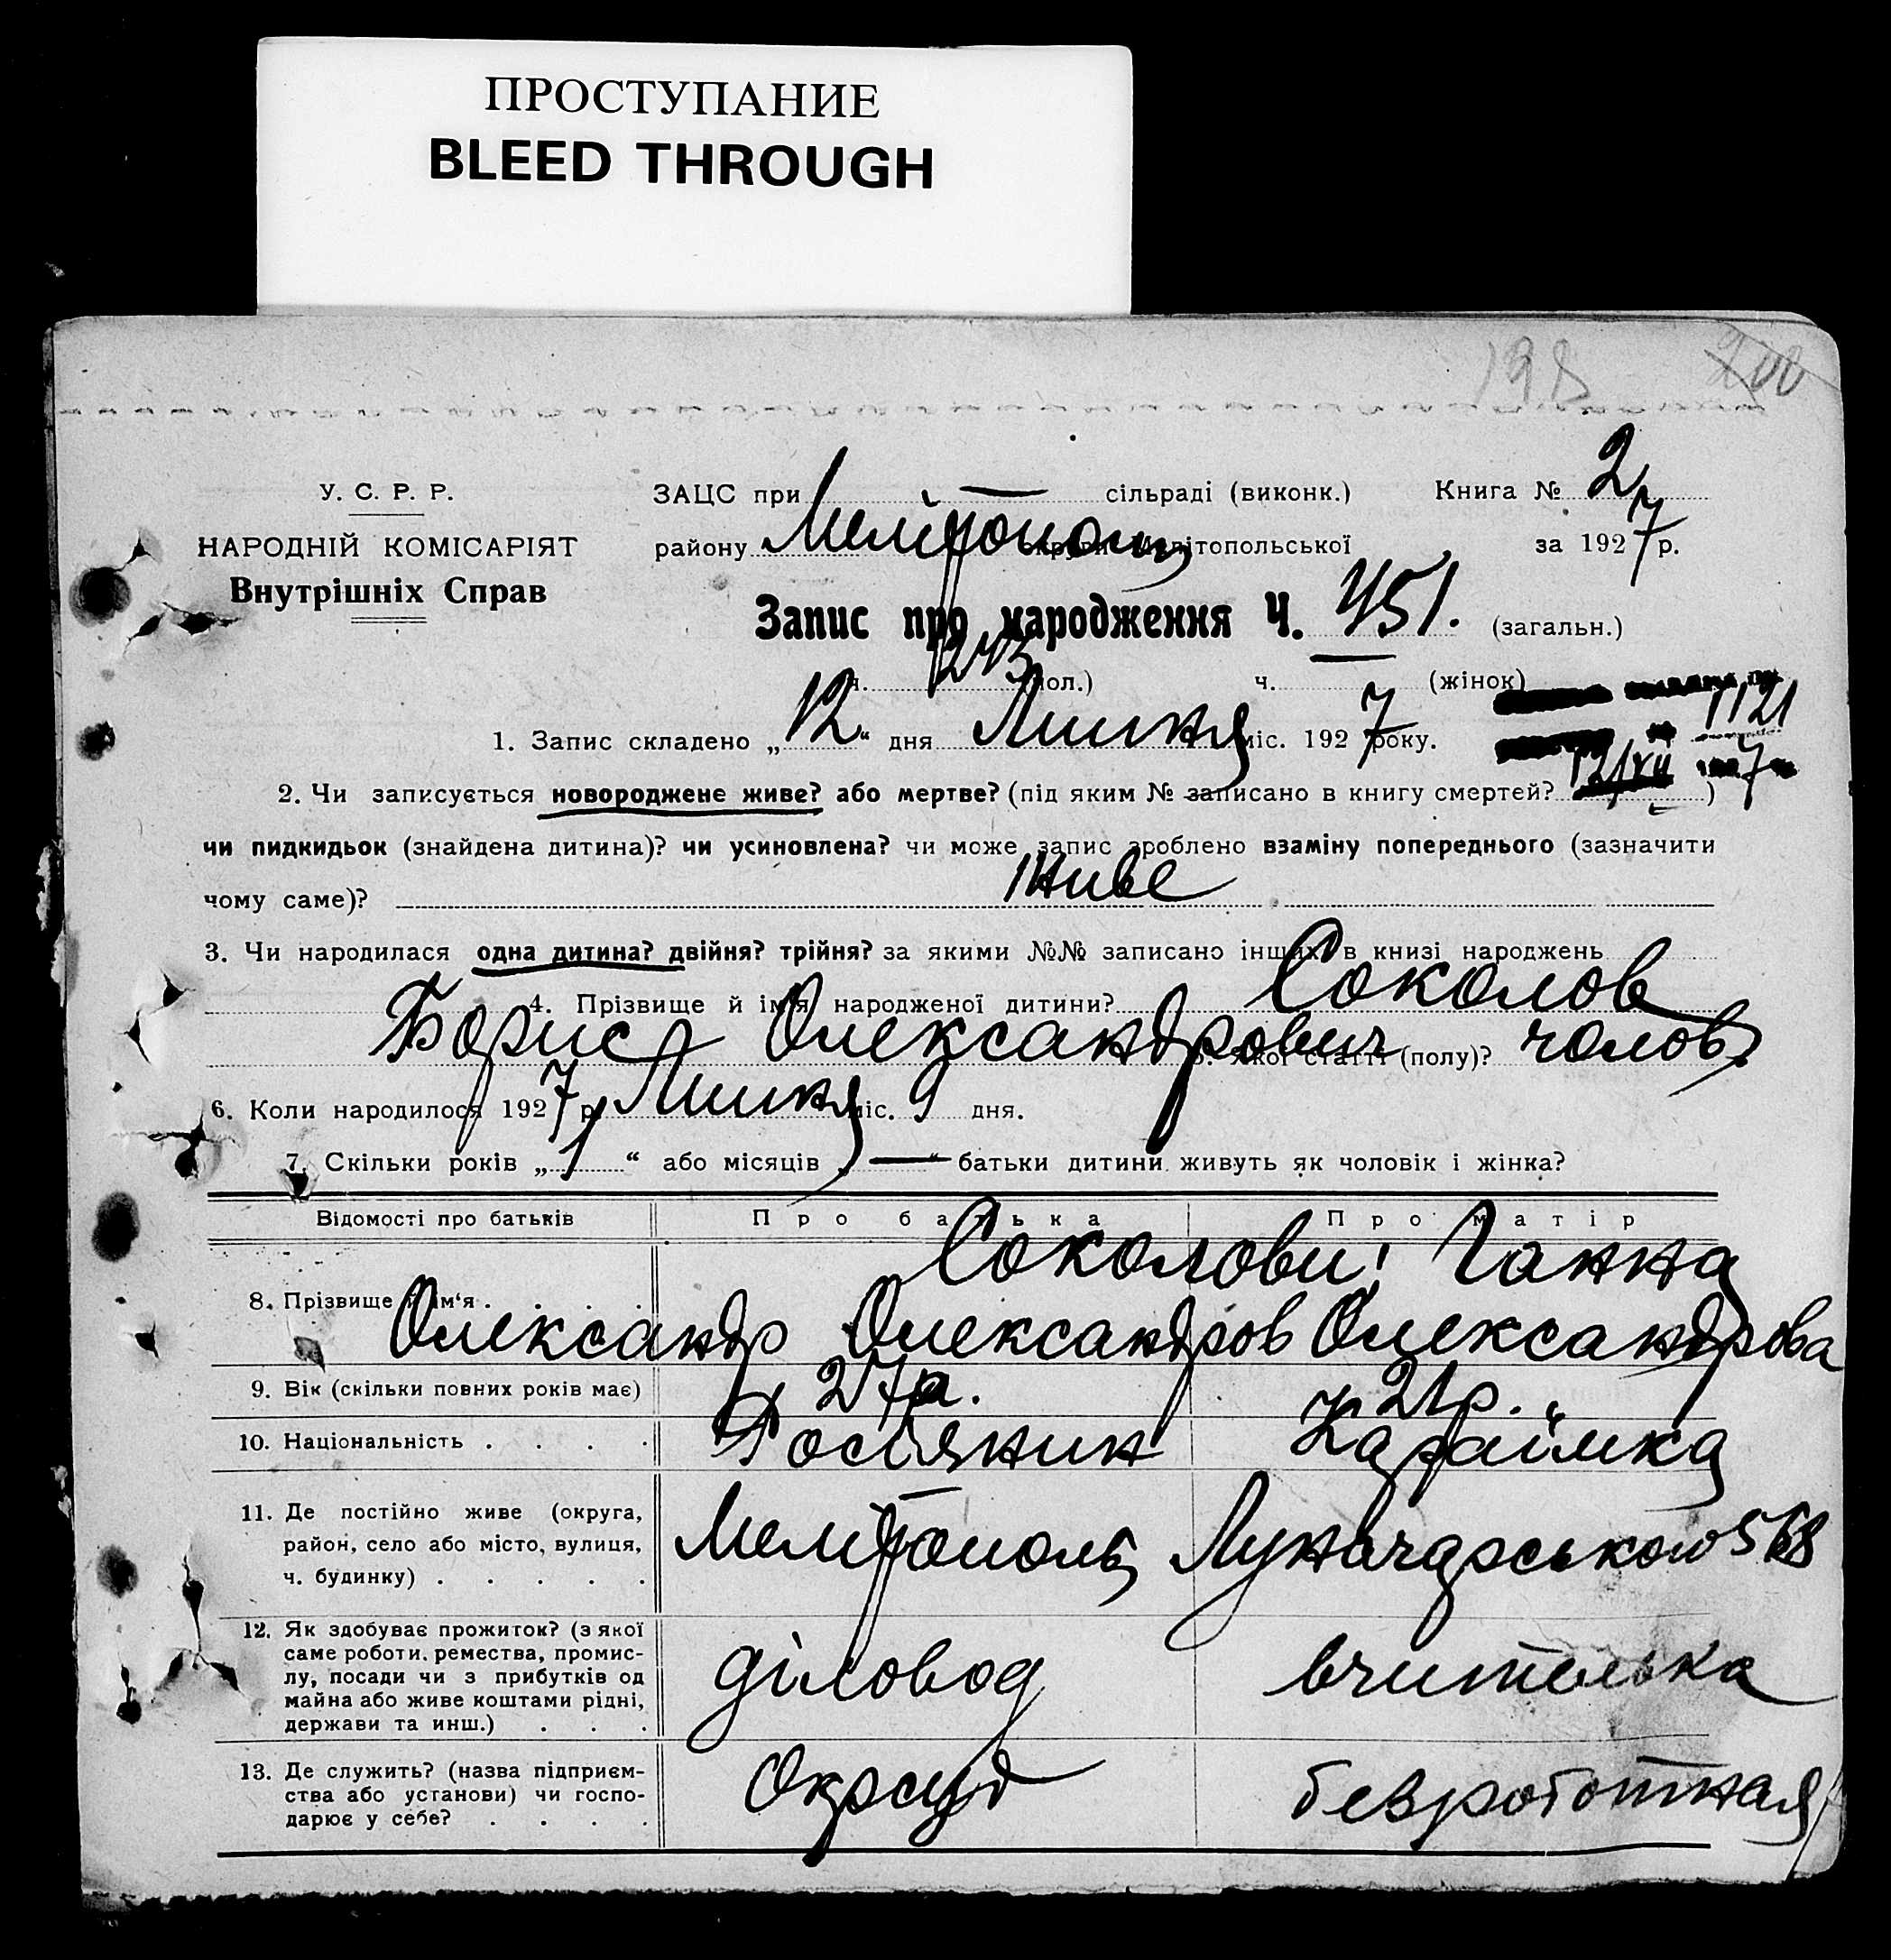 ПРОСТУПАНИЕ
BLEED THROUGH
198 200
У. С. Р. Р.
НАРОДНІЙ КОМІСАРІЯТ
Внутрішніх Справ
ЗАЦС при — сільраді (виконк.) Книга № 2
району Мелітополь округи Мелітопольської за 1927 р.
Запис про народження Ч. 451. (загальн.)
ч. 243 (чол.) ч. — (жінок)
1121
1. Запис складено „12“ дня Липня міс. 1927 року.
2. Чи записується новороджене живе? або мертве? (під яким № записано в книгу смертей? )
чи пидкидьок (знайдена дитина)? чи усиновлена? чи може запис зроблено взаміну попереднього (зазначити
чому саме)? живе
3. Чи народилася одна дитина? двійня? трійня? за якими №№ записано інших в книзі народжень
4. Прізвище й ім'я народженої дитини? Соколов
Борис Олександрович 5. Якої статті (полу)? чолов.
6. Коли народилося 1927 р. Липня міс. 9 дня.
7. Скільки років „1“ або місяців „—“ батьки дитини живуть як чоловік і жінка?
Відомості про батьків Про батька Про матір
Соколови: Ганна
8. Прізвище й ім'я . . . . .
Олександр Олександров Олександрова
9. Вік (скільки повних років має) 27 р. 21 р.
10. Національність . . . . Росіянин Караїмка
11. Де постійно живе (округа,
район, село або місто, вулиця,
ч. будинку) . . . . .
Мелітополь Луначарського 568
12. Як здобуває прожиток? (з якої
саме роботи, ремества, промис-
лу, посади чи з прибутків од
майна або живе коштами рідні,
держави та инш.) . . .
діловод вчителька
13. Де служить? (назва підприєм-
ства або установи) чи госпо-
дарює у себе? . . . .
Окрсуд безроботная